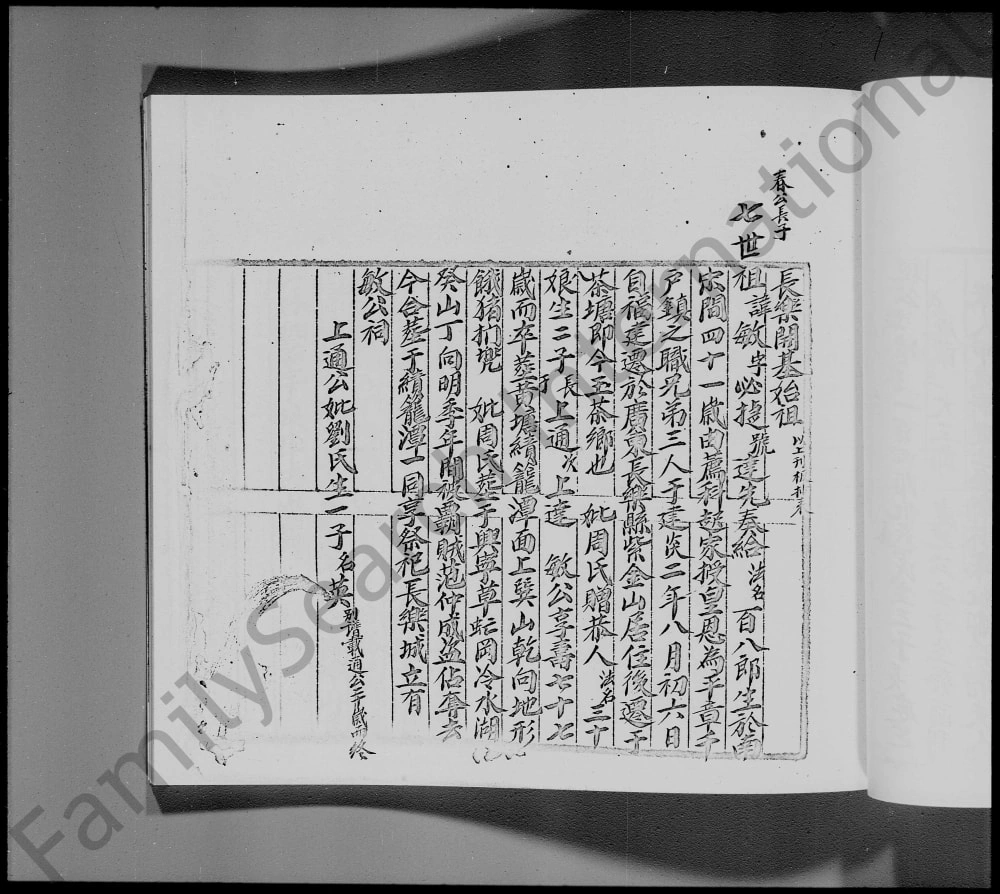 春公長子
七世
長樂開基始祖 以上刊板抄來
祖諱敏字必捷號達先奏給法名百八郎生於南
宋間四十一歲由薦科起家授皇恩為平章千
户鎮之職兄弟三人于建炎二年八月初六日
自福建遷於廣東長樂縣紫金山居住後遷于
茶塘即今五茶鄉也 妣周氏贈恭人法名三十
八娘生二子長上通次上達 敏公享壽七十七
歲而卒葬于黄塘績籠潭面上巽山乾向地形
餓猪扪兠 妣周氏葬于興寧草坛岡冷水湖
癸山丁向明季年間被覇賊范仲成盗佔奪去
今合葬于績籠潭一同享祭祀長樂城立有
敏公祠
上通公妣劉氏生一子名英 别譜載通公二十歲而終
FamilySearch International